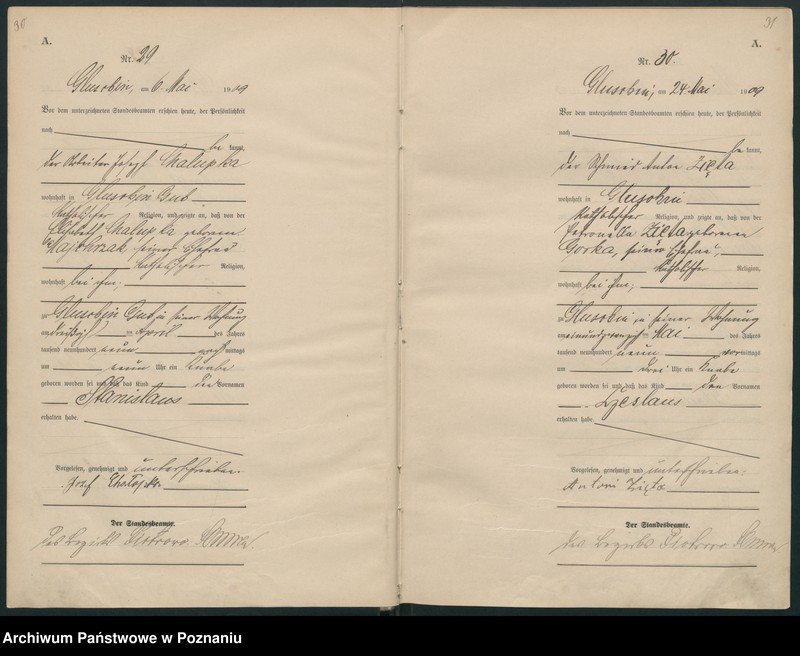 30
A.
Nr. 29
Glusobin, am 6. Mai 1909
Vor dem unterzeichneten Standesbeamten erschien heute, der Persönlichkeit
nach
be kannt,
der Arbeiter Josef Chalupka
wohnhaft in Glusobin Gut
katholischer Religion, und zeigte an, daß von der
Elisabeth Chalupka geborenen
Majchrzak, seiner Ehefrau
katholischer Religion,
wohnhaft bei ihm;
zu Glusobin Gut in seiner Wohnung
am dreißigsten April des Jahres
tausend neunhundert neun nachmittags
um neun Uhr ein Knabe
geboren worden sei und daß das Kind den Vornamen
Stanislaus
erhalten habe.
Vorgelesen, genehmigt und unterschrieben.
Josef Chalupka
Der Standesbeamte.
31
A.
Nr. 30.
Glusobin, am 24. Mai 1909
Vor dem unterzeichneten Standesbeamten erschien heute, der Persönlichkeit
nach
be kannt,
der Schmied Anton Zięta
wohnhaft in Glusobin
katholischer Religion, und zeigte an, daß von der
Petronella Zięta geborenen
Gorka, seiner Ehefrau,
katholischer Religion,
wohnhaft bei ihm;
zu Glusobin in seiner Wohnung
am einundzwanzigsten Mai des Jahres
tausend neunhundert neun vormittags
um drei Uhr ein Knabe
geboren worden sei und daß das Kind den Vornamen
Czeslaus
erhalten habe.
Vorgelesen, genehmigt und unterschrieben:
Antoni Zięta
Der Standesbeamte.
Archiwum Państwowe w Poznaniu